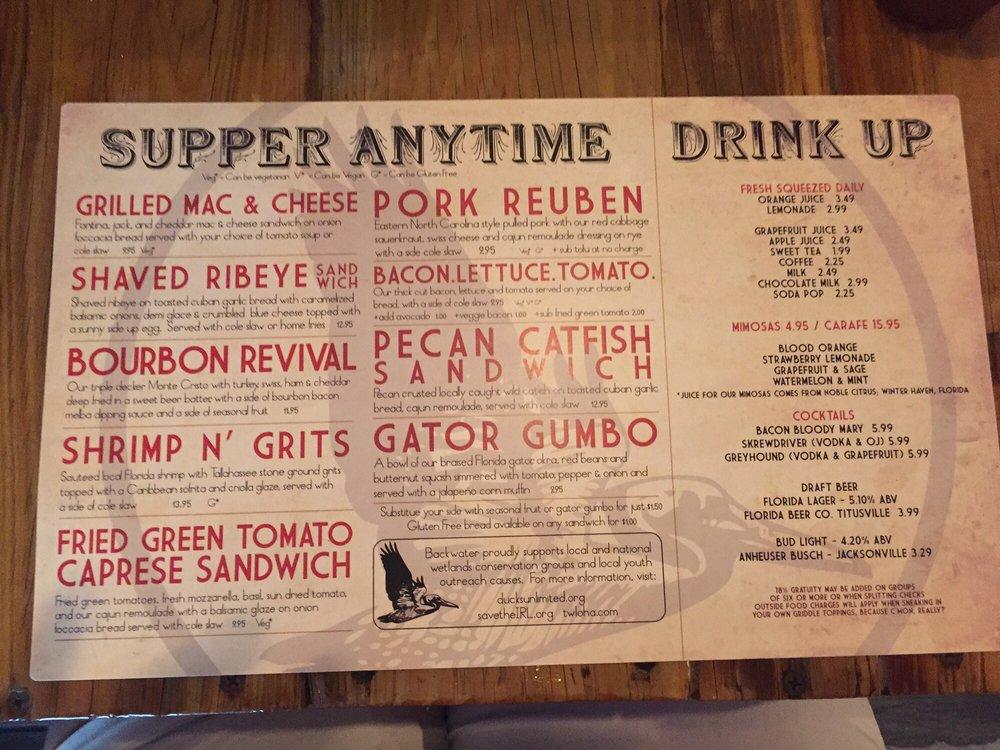 SUPPER ANYTIME
Veg* - Can be vegetarian V* - Can be Vegan G* - Can be Gluten Free
GRILLED MAC & CHEESE
Fontina, jack, and cheddar mac & cheese sandwich on onion
foccacia bread served with your choice of tomato soup or
cole slaw 8.95 Veg*
SHAVED RIBEYE SAND
WICH
Shaved ribeye on toasted cuban garlic bread with caramelized
balsamic onions, demi glace & crumbled blue cheese topped with
a sunny side up egg. Served with cole slaw or home fries 12.95
BOURBON REVIVAL
Our triple decker Monte Cristo with turkey, swiss, ham & cheddar
deep fried in a sweet beer batter with a side of bourbon bacon
melba dipping sauce and a side of seasonal fruit 11.95
SHRIMP N' GRITS
Sauteed local Florida shrimp with Tallahassee stone ground grits
topped with a Caribbean sofrita and criolla glaze, served with
a side of cole slaw 13.95 G*
FRIED GREEN TOMATO
CAPRESE SANDWICH
Fried green tomatoes, fresh mozzarella, basil, sun dried tomato,
and our cajun remoulade with a balsamic glaze on onion
foccacia bread served with cole slaw 8.95 Veg*
PORK REUBEN
Eastern North Carolina style pulled pork with our red cabbage
sauerkraut, swiss cheese and cajun remoulade dressing on rye
with a side cole slaw 9.95 Veg* G* + sub tofu at no charge
BACON.LETTUCE.TOMATO.
Our thick cut bacon, lettuce and tomato served on your choice of
bread, with a side of cole slaw 8.95 Veg* V* G*
+add avocado 1.00 +veggie bacon 1.00 +sub fried green tomato 2.00
PECAN CATFISH
SANDWICH
Pecan crusted locally caught wild catfish on toasted cuban garlic
bread, cajun remoulade, served with cole slaw 12.95
GATOR GUMBO
A bowl of our braised Florida gator, okra, red beans and
butternut squash simmered with tomato, pepper & onion and
served with a jalapeño corn muffin 9.95
Substitue your side with seasonal fruit or gator gumbo for just $1.50
Gluten Free bread available on any sandwich for $1.00
Backwater proudly supports local and national
wetlands conservation groups and local youth
outreach causes. For more information, visit:
ducksunlimited.org
savetheIRL.org twloha.com
DRINK UP
FRESH SQUEEZED DAILY
ORANGE JUICE 3.49
LEMONADE 2.99
GRAPEFRUIT JUICE 3.49
APPLE JUICE 2.49
SWEET TEA 1.99
COFFEE 2.25
MILK 2.49
CHOCOLATE MILK 2.99
SODA POP 2.25
MIMOSAS 4.95 / CARAFE 15.95
BLOOD ORANGE
STRAWBERRY LEMONADE
GRAPEFRUIT & SAGE
WATERMELON & MINT
*JUICE FOR OUR MIMOSAS COMES FROM NOBLE CITRUS; WINTER HAVEN, FLORIDA
COCKTAILS
BACON BLOODY MARY 5.99
SKREWDRIVER (VODKA & OJ) 5.99
GREYHOUND (VODKA & GRAPEFRUIT) 5.99
DRAFT BEER
FLORIDA LAGER - 5.10% ABV
FLORIDA BEER CO. TITUSVILLE 3.99
BUD LIGHT - 4.20% ABV
ANHEUSER BUSCH - JACKSONVILLE 3.29
18% GRATUITY MAY BE ADDED ON GROUPS
OF SIX OR MORE OR WHEN SPLITTING CHECKS
OUTSIDE FOOD CHARGES WILL APPLY WHEN SNEAKING IN
YOUR OWN GRIDDLE TOPPINGS, BECAUSE C'MON, REALLY?